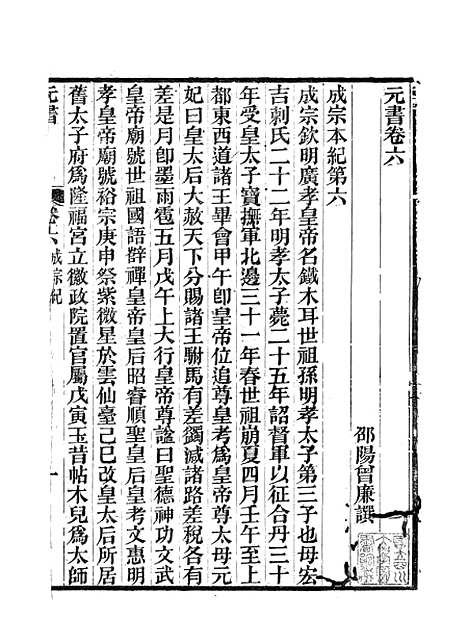 元書卷六
邵陽曾廉譔
成宗本紀第六
成宗欽明廣孝皇帝名鐵木耳世祖孫明孝太子第三子也母宏
吉剌氏二十二年明孝太子薨二十五年詔督軍以征合丹三十
年受皇太子寶撫軍北邊三十一年春世祖崩夏四月壬午至上
都東西道諸王畢會甲午卽皇帝位追尊皇考爲皇帝尊太母元
妃曰皇太后大赦天下分賜諸王駙馬有差蠲減諸路差稅有
差是月卽墨雨雹五月戊午上大行皇帝尊諡曰聖德神功文武
皇帝廟號世祖國語辥禪皇帝皇后昭睿順聖皇后皇考文惠明
孝皇帝廟號裕宗庚申祭紫微星於雲仙臺己巳改皇太后所居
舊太子府爲隆福宮立徽政院置官屬戊寅玉昔帖木兒爲太師
元書
卷六 成宗紀
一